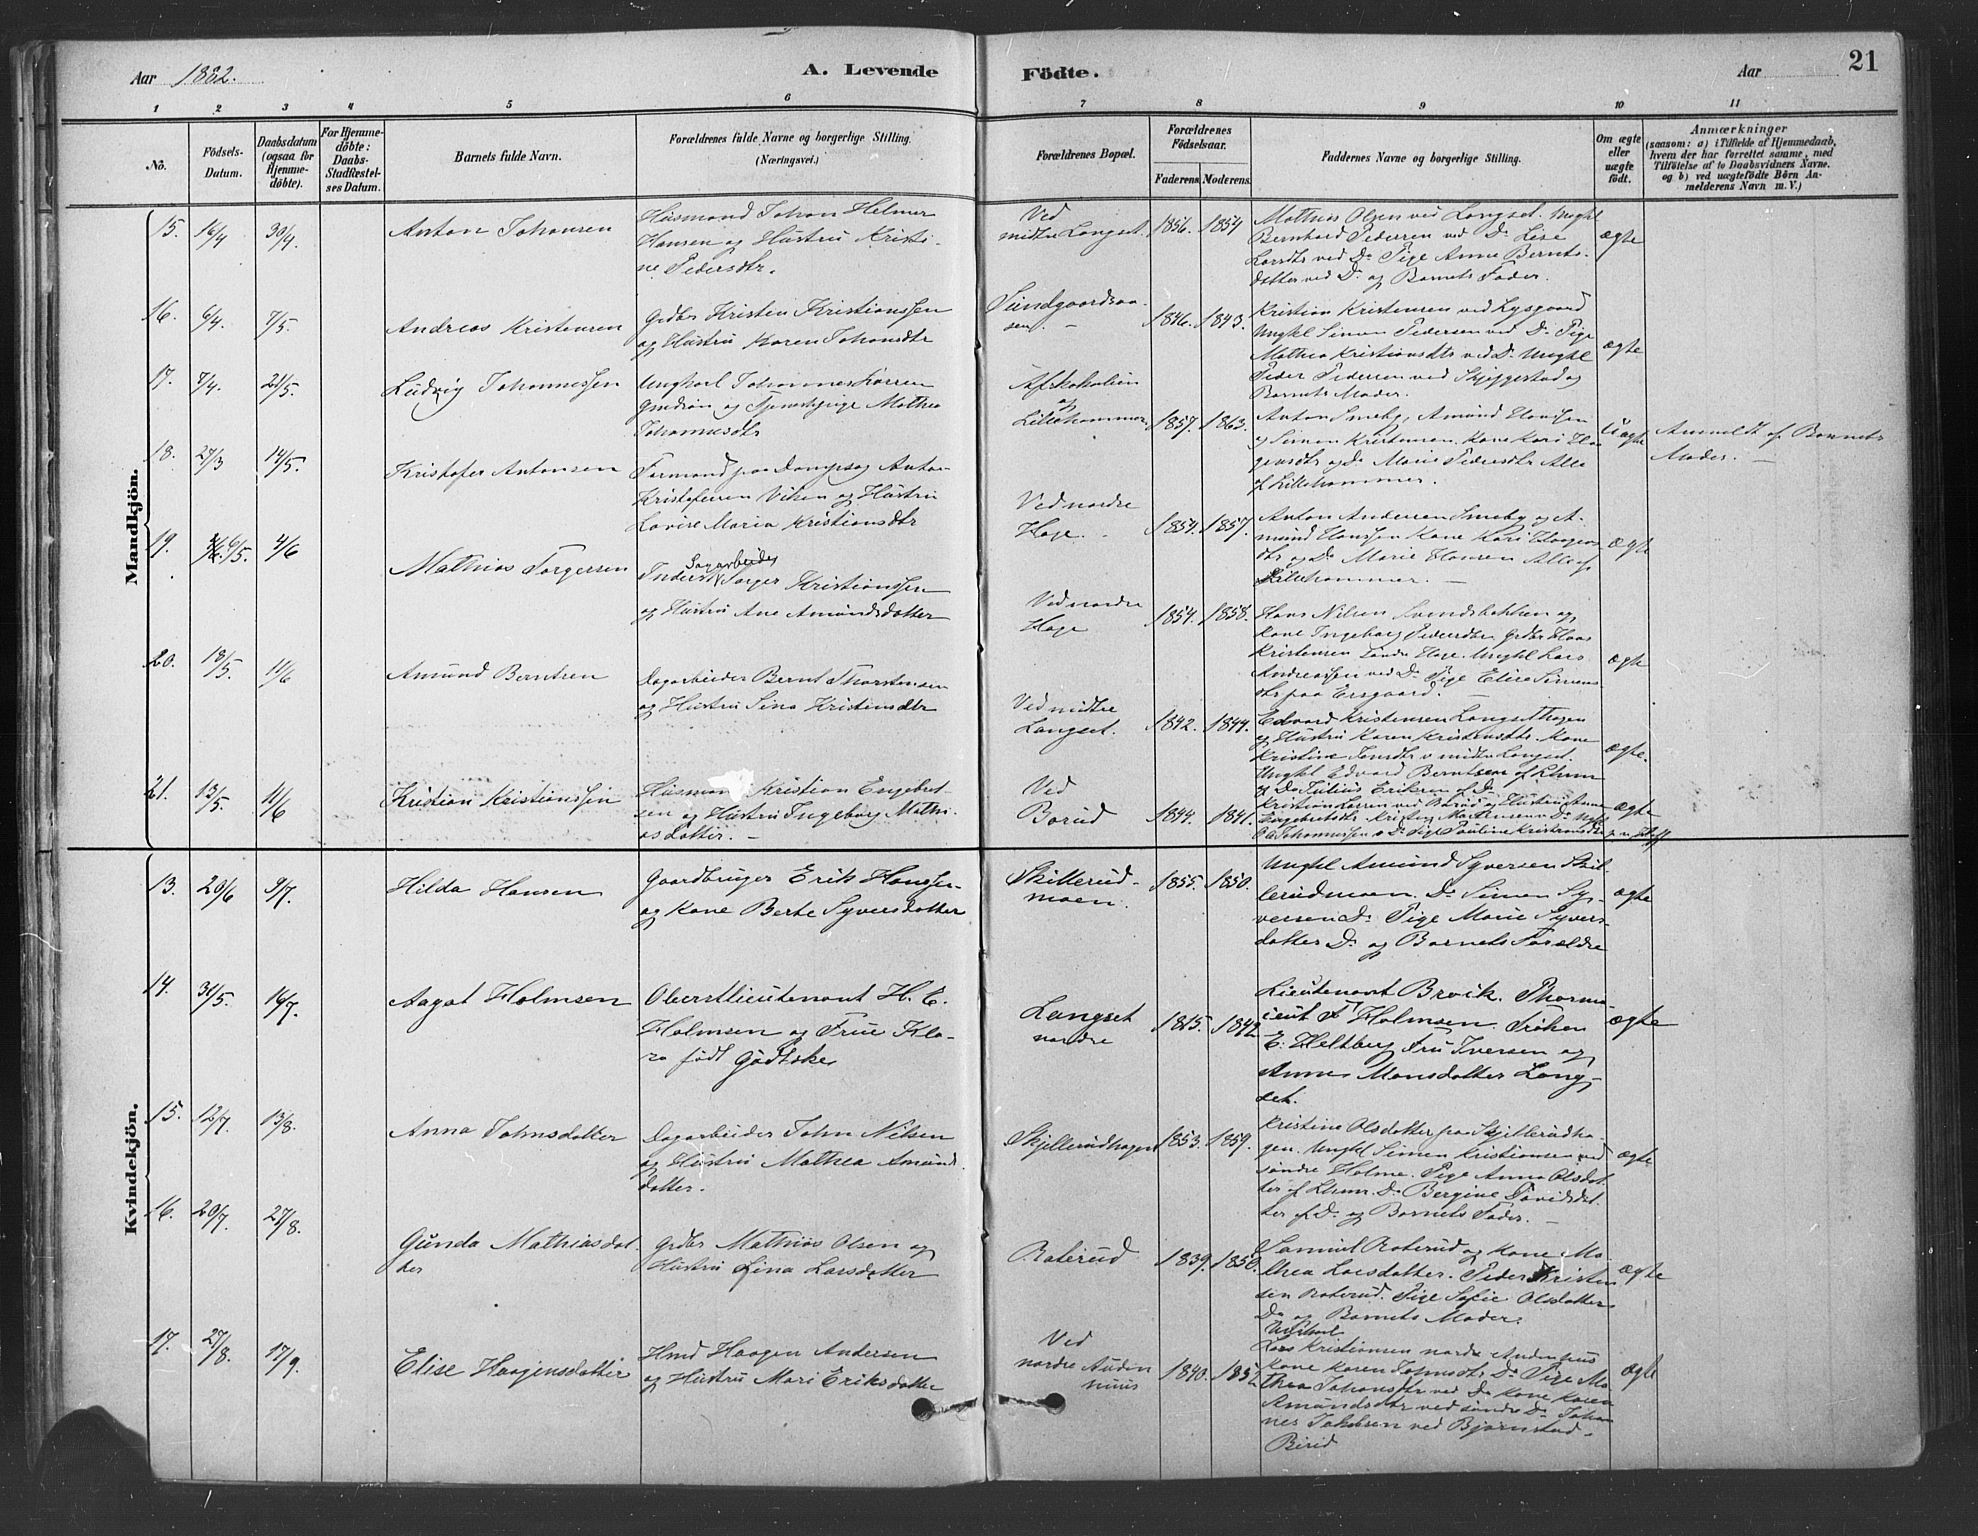 Aar 1882. A. Levende Födte. Aar 21
1 2 3 4 5 6 7 8 9 10 11
No. Födsels-Datum. Daabsdatum (ogsaa for Hjemmedöbte). For Hjemmedöbte: Daabs-Stadfæstelses Datum. Barnets fulde Navn. Forældrenes fulde Navne og borgerlige Stilling. (Næringsvei.) Forældrenes Bopæl. Forældrenes Födselsaar. Faderens. Moderens. Faddernes Navne og borgerlige Stilling. Om ægte eller uægte födt. Anmærkninger (saasom: a) i Tilfælde af Hjemmedaab, hvem der har forrettet samme, med Tilföielse af to Daabsvidners Navne. og b) ved uægtefödte Börn Anmelderens Navn m. V.)
Mandkjön.
15. 16/4 30/4 Anton Johansen
Husmand Johan Helmer
Hansen og Hustru Kristi-
ne Pedersdtr.
Ved
midtre Langset. 1856. 1854
Mathias Olsen ved Langset. Ungkl
Bernhard Pedersen ved Do Lise
Larsdtr ved Do Pige Anne Bernts-
datter ved Do og Barnets Fader.
ægte
16. 6/4 7/5. Andreas Kristensen
Grdbr Kristen Kristiansen
og Hustru Karen Johansdtr
Sundgaardsaa-
sen. 1846. 1843.
Kristian Kristensen ved Lysgaard
Ungkl Simen Pedersen ved Do Pige
Mathea Kristiansdtr ved Do Ungkl
Peder Pedersen ved Skjeggestad og
Barnets Moder.
ægte
17. 7/4. 21/5. Ludvig Johannessen
Ungkarl Johannes Larsen
og Tjenestepige Mathea
Johannesdtr
Lillehammer 1857. 1863.
Anton Smeby, Amund Hanssen
og Simen Kristensen, Kone Kari Haa-
gensdtr og Do Marie Pedersdtr Alle
af Lillehammer.
Uægte
Anmeldt af Barnets
Moder.
18. 27/3 14/5. Kristofer Antonsen
Formand paa Anton
Kristofersen Viken og Hustru
Lovise Maria Kristiansdtr
Ved nordre
Hage. 1854. 1857.
Anton Andersen Smeby og A-
mund Hanssen Kone Kari Haagens-
dtr og Do Marie Hansen Alle af
Lillehammer.
ægte
19. 6/5. 4/6 Mathias Torgersen
Sagarbeider
Inderst Torger Kristiansen
og Hustru Ane Amundsdatter
Ved nordre
Hage 1854. 1858.
Hans Nilsen Svendsbakken og
Kone Ingeborg Pedersdtr Grdbr Hans
Kristensen Söndre Hage. Ungkl Lars
Andreassen ved Do Pige Elise Simens-
dtr paa Ersgaard.
ægte
20. 18/5. 11/6 Amund Berntsen
Dagarbeider Bernt Thorstensen
og Hustru Lina Kristensdtr
Ved midtre
Langset. 1842. 1844.
Edvard Kristensen Langsethagen
og Hustru Karen Kristensdtr. Kone
Kristine Jensdtr v midtre Langset.
Ungkl Edvard Berntsen af Lhmr
og Do Julius Eriksen af Do
ægte.
21. 13/5. 11/6 Kristian Kristianssen
Husmand Kristian Engebret-
sen og Hustru Ingeborg Mathi-
asdatter.
Ved
Borud 1844. 1841.
Kristian Larsen ved Borud og Hustru Anne
Engebretsdtr Kristian Mortensen v Do Ungkl
O. Johannessen v Do Pige Pauline Kristiansdtr
ægte
Kvindekjön.
13. 20/6 9/7. Hilda Hansen
Gaardbruger Erik Hanssen
og Kone Berte Syversdatter
Skillerud-
moen. 1855. 1850.
Ungkl Amund Syversen Skil-
lerudmoen. Do Simen Sy-
versen Do Pige Marie Syvers-
datter Do og Barnets Forældre
ægte
14. 31/5. 16/7. Aagot Holmsen
Oberstlieutenant H. E.
Holmsen og Frue Kla-
ra født Gödtske
Langset
nordre 1815. 1842
Lieutenant Brock.
Holmsen. Fröken
E. Heltberg Fru Iversen og
Anne Monsdatter Lang-
set.
ægte
15. 12/7. 13/8. Anna Johnsdatter
Dagarbeider John Nilsen
og Hustru Mathea Amunds-
datter.
Skjillerudhagen 1853. 1859.
Kristine Olsdatter paa Skjillerudha-
gen. Ungkl Simen Kristiansen ved
söndre Holme. Pige Anna Olsdat-
ter af Lhmr. Do Bergine Davidsdat-
ter af Do og Barnets Fader.
ægte
16. 20/7. 27/8. Gunda Mathiasdat-
ter
Grdbr Mathias Olsen og
Hustru Lina Larsdatter
Roterud 1839. 1850.
Samuel Roterud og Kone Ma-
thea Larsdatter. Peder Kristen-
sen Roterud. Pige Sofie Olsdatter
Do og Barnets Moder.
ægte
17. 27/8. 17/9. Elise Haagensdatter
Hmd Haagen Andersen
og Hustru Mari Eriksdatter
Ved
nordre Auden-
nuus 1840. 1852
Ungkarl
Lars Kristiansen nordre
Kone Karen Johnsdtr Do Pige Ma-
thea Johansdtr ved Do Kone Karen
Amundsdtr ved söndre Do Johan-
nes Jakobsen ved Bjørnstad
Birid
ægte